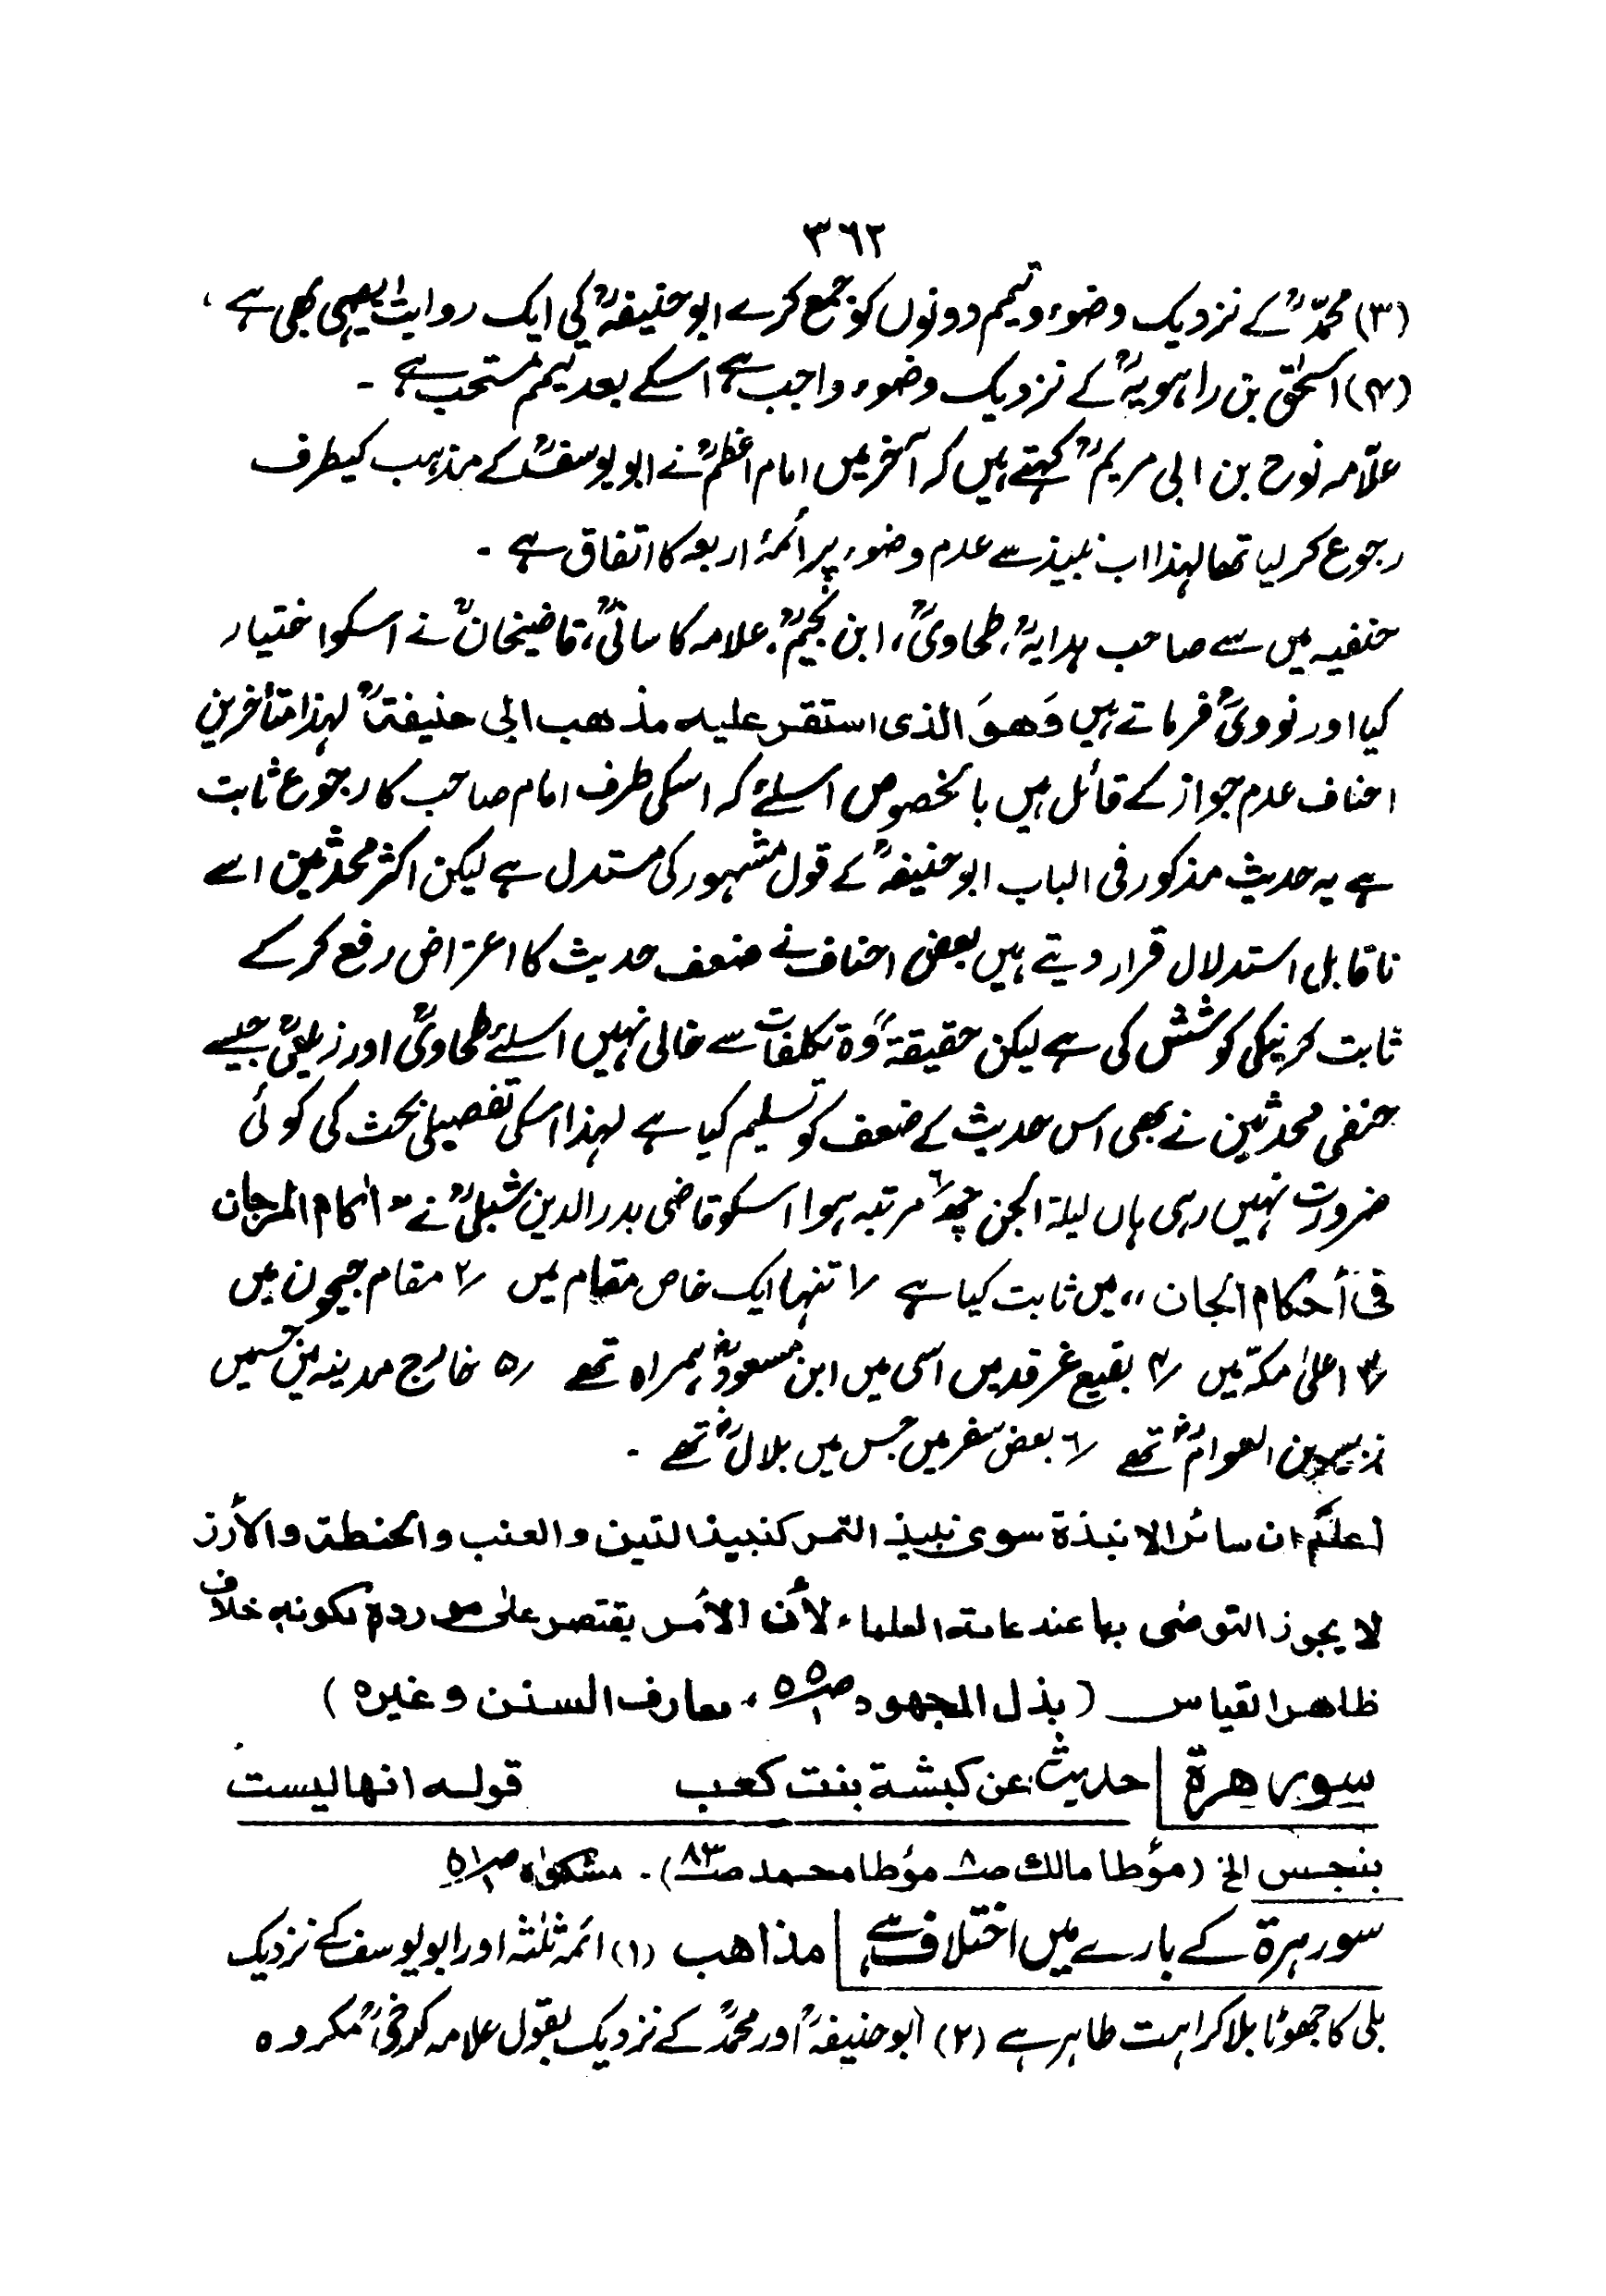 ٣٦٢
(٣) محمدؒ کے نزدیک وضوء وتیمم دونوں کو جمع کرے ابوحنیفہؒ کی ایک روایت ایسی ہی بھی ہے ،
(۴) اسحٰق بن راہویہؒ کے نزدیک وضوء واجب ہے اسکے بعد تیمم مستحب ہے ۔
علّامہ نوح بن ابی مریمؒ کہتے ہیں کہ آخر میں امام اعظمؒ نے ابو یوسفؒ کے مذہب کیطرف
رجوع کر لیا تھا لہذا اب نبیذ سے عدم وضوء پر ائمۂ اربعہ کا اتفاق ہے ۔
حنفیہ میں سے صاحب ہدایہؒ، طحاویؒ، ابن نجیمؒ، علامہ کاسانیؒ، قاضیخانؒ نے اسکو اختیار
کیا اور نوویؒ فرماتے ہیں وَھوَ الذی استقر علیہ مذھب ابی حنیفۃؒ لہذا متأخرین
احناف عدم جواز کے قائل ہیں بالخصوص اسلئے کہ اسکی طرف امام صاحب کا رجوع ثابت
ہے یہ حدیث مذکور فی الباب ابوحنیفہؒ کے قول مشہور کی مستدل ہے لیکن اکثر محدثین اسے
ناقابل استدلال قرار دیتے ہیں بعض احناف نے ضعف حدیث کا اعتراض رفع کر کے
ثابت کرنیکی کوشش کی ہے لیکن حقیقۃً وہ تکلفات سے خالی نہیں اسلئے طحاویؒ اور زیلعیؒ جیسے
حنفی محدثین نے بھی اس حدیث کے ضعف کو تسلیم کیا ہے لہذا اسکی تفصیلی بحث کی کوئی
ضرورت نہیں رہی ہاں لیلۃ الجن چھ٦ مرتبہ ہوا اسکو قاضی بدرالدین شبلیؒ نے " اٰکام المرجان
فی أحکام الجان ،، میں ثابت کیا ہے ١؍ تنہا ایک خاص مقام میں ٢؍ مقام حیجون میں
٣؍ اعلیٰ مکہ میں ۴؍ بقیع غرقد میں اسی میں ابن مسعودؓ ہمراہ تھے ۵؍ خارج مدینہ میں جسمیں
زبیر بن العوامؓ تھے ٦؍ بعض سفر میں جس میں بلالؓ تھے ۔
اعلم ان سائر الانبذۃ سوی نبیذ التمر کنبیذ التین والعنب والحنطۃ والأرز
لا یجوز التوضی بہا عند عامۃ العلماء لأن الأمر یقتصر علیٰ موردہ لکونہ خلاف
ظاھر القیاس (بذل المجہود ص۵۵/١ ، معارف السنن وغیرہ)
سور ھرۃ | حدیث عن کبشۃ بنت کعب قولہ انھا لیست
بنجس الخ (مؤطا مالک ص٨ مؤطا محمد ص٨٣)۔ مشکوٰۃ ص۵١/١
سور ہرۃ کے بارے میں اختلاف ہے | مذاھب (١) ائمہ ثلٰثہ اور ابو یوسف کے نزدیک
بلی کا جھوٹا بلا کراہت طاہر ہے (٢) ابوحنیفہؒ اور محمدؒ کے نزدیک بقول علامہ کرخیؒ مکروہ